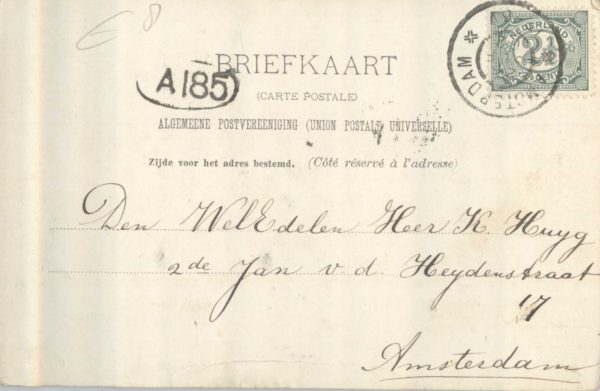 8
NEDERLAND
2½
CENT
AMSTERDAM
BRIEFKAART
A185
(CARTE POSTALE)
ALGEMEENE POSTVEREENIGING (UNION POSTALE UNIVERSELLE)
Zijde voor het adres bestemd. (Côté réservé à l'adresse)
Den WelEdelen Heer K. Huyg
2de Jan v. d. Heydenstraat
17
Amsterdam